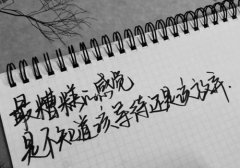 最糟糕的感觉
是不知道该等待还是该放弃.